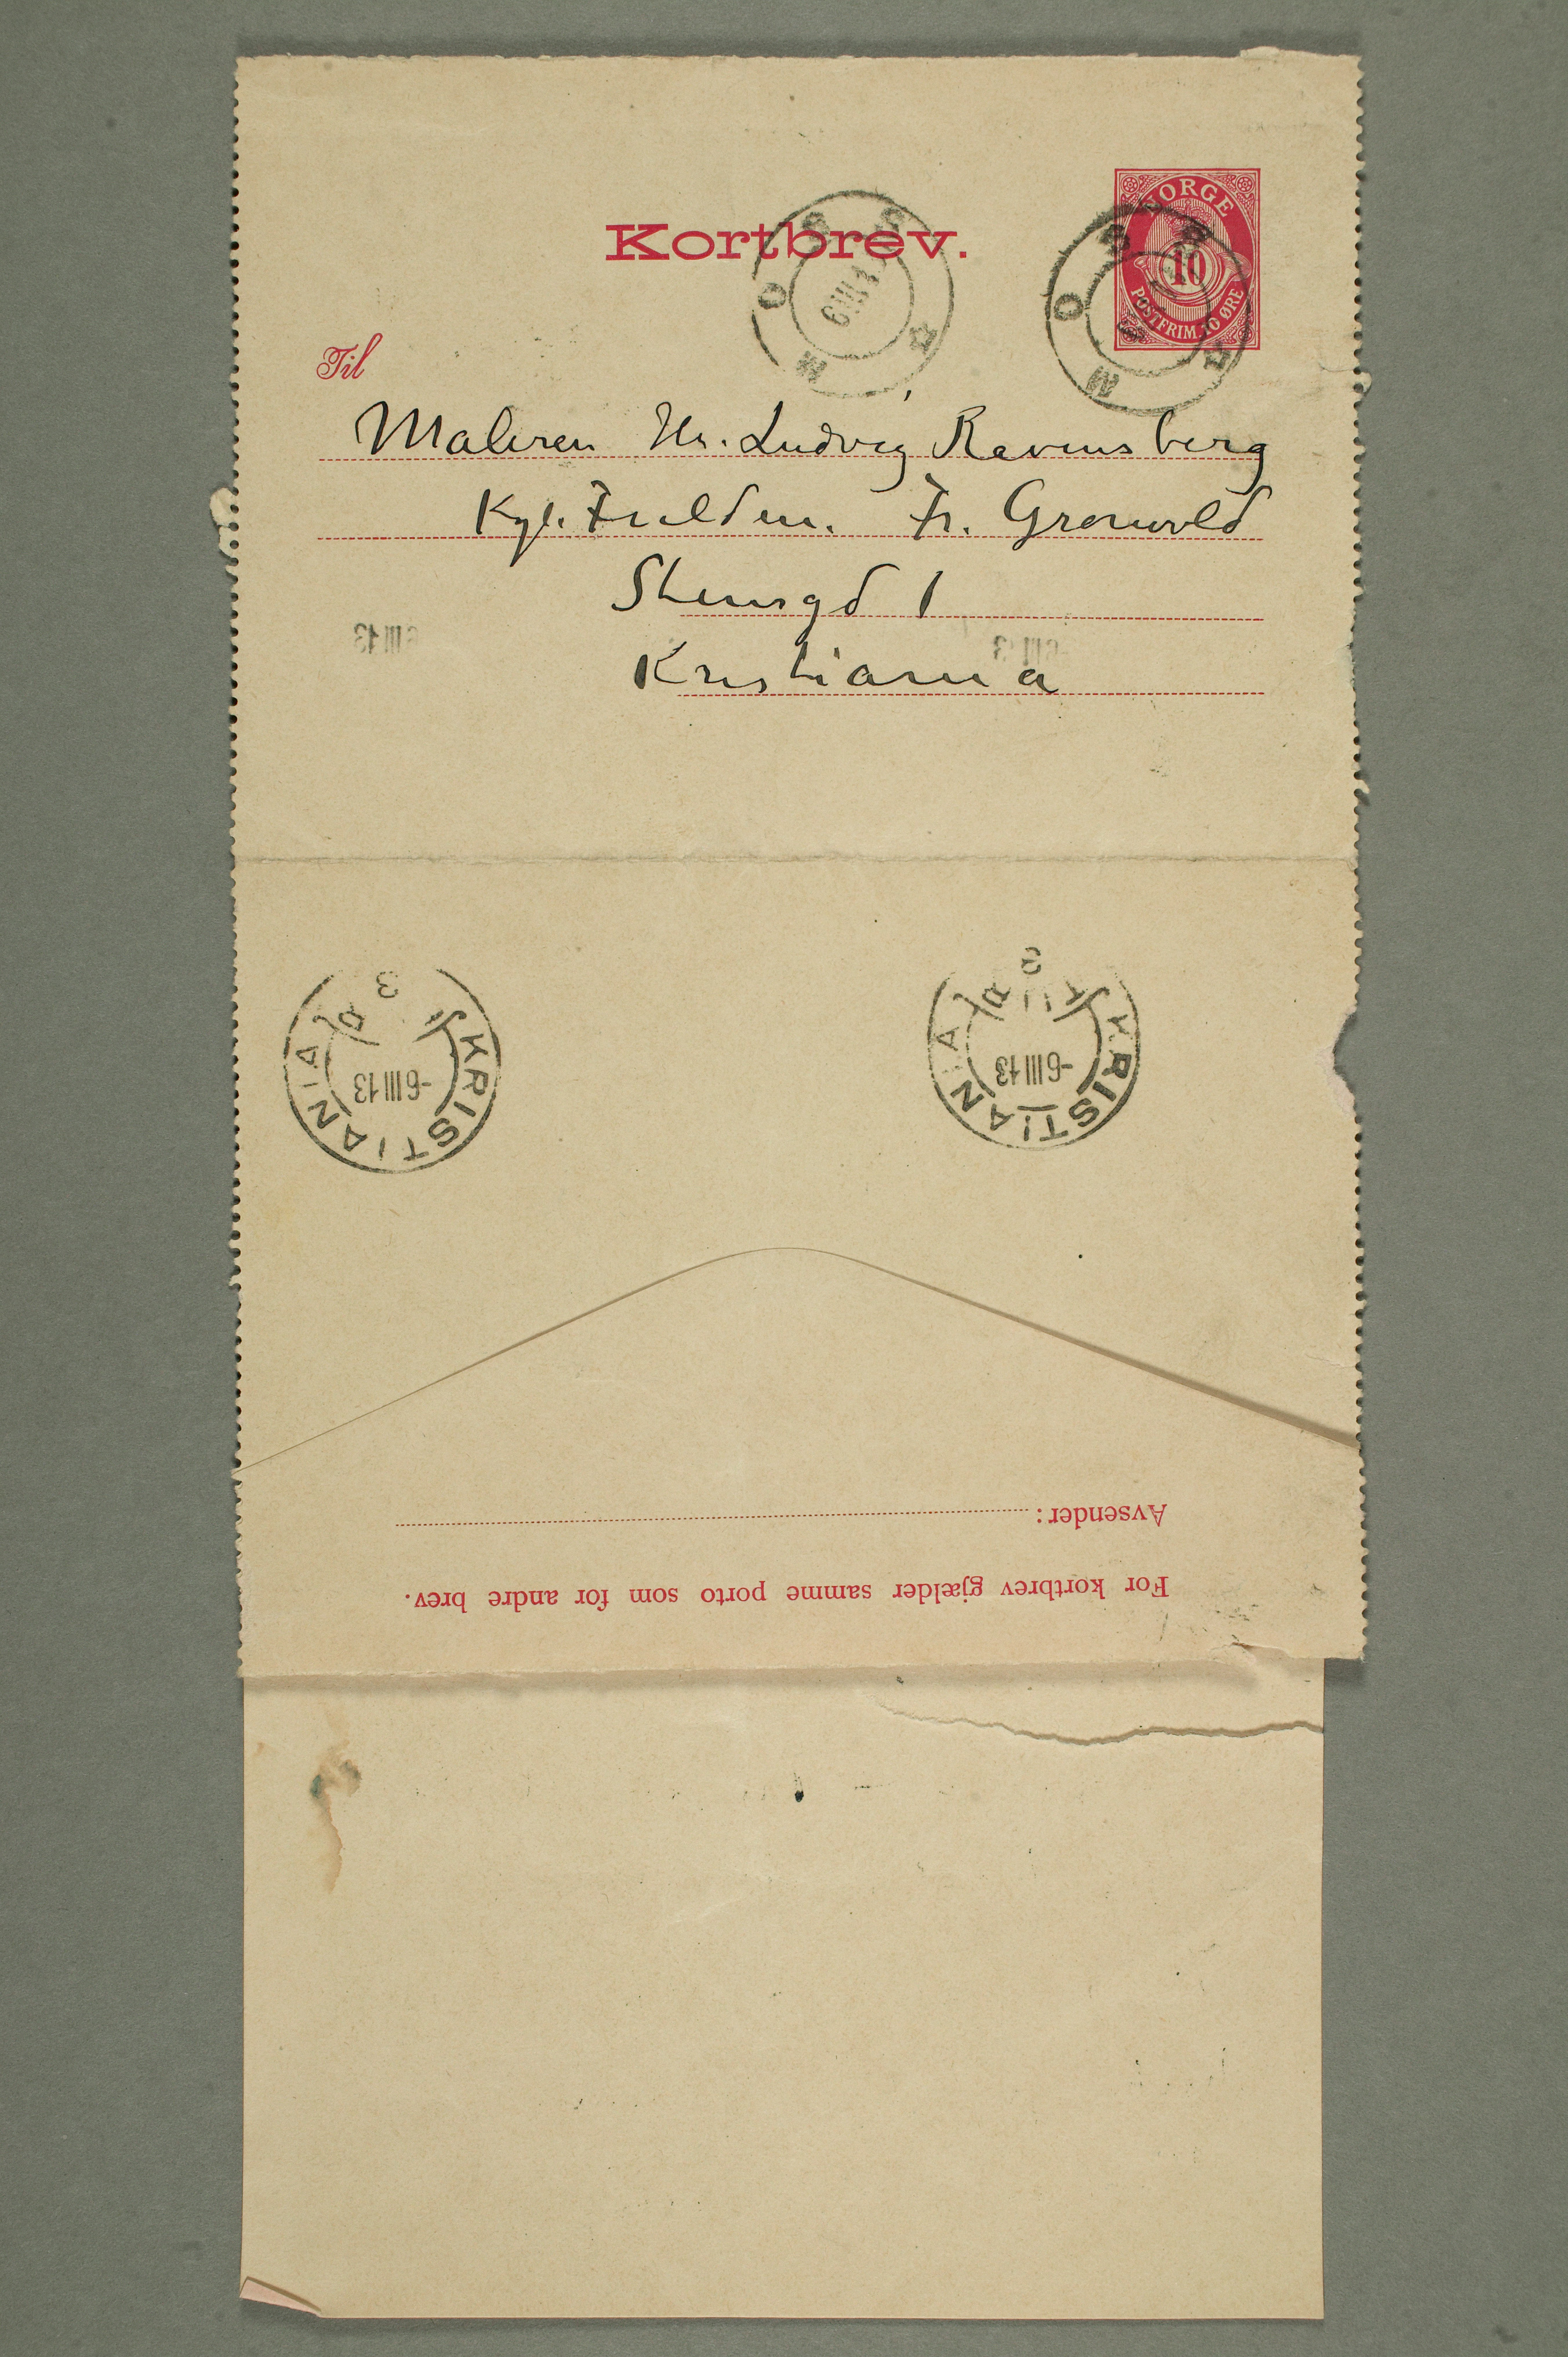 Kortbrev.
NORGE
10
POSTFRIM. 10 ØRE
MOSS
6 III 13
MOSS
Til
Maleren Hr. Ludvig Ravensberg
Kgl. Fuldm. Fr. Grønvold
Stensgd 1
Kristiania
6 III 13
III 13
KRISTIANIA
-6 III 13
3
KRISTIANIA
-6 III 13
3
Avsender:
For kortbrev gjælder samme porto som for andre brev.